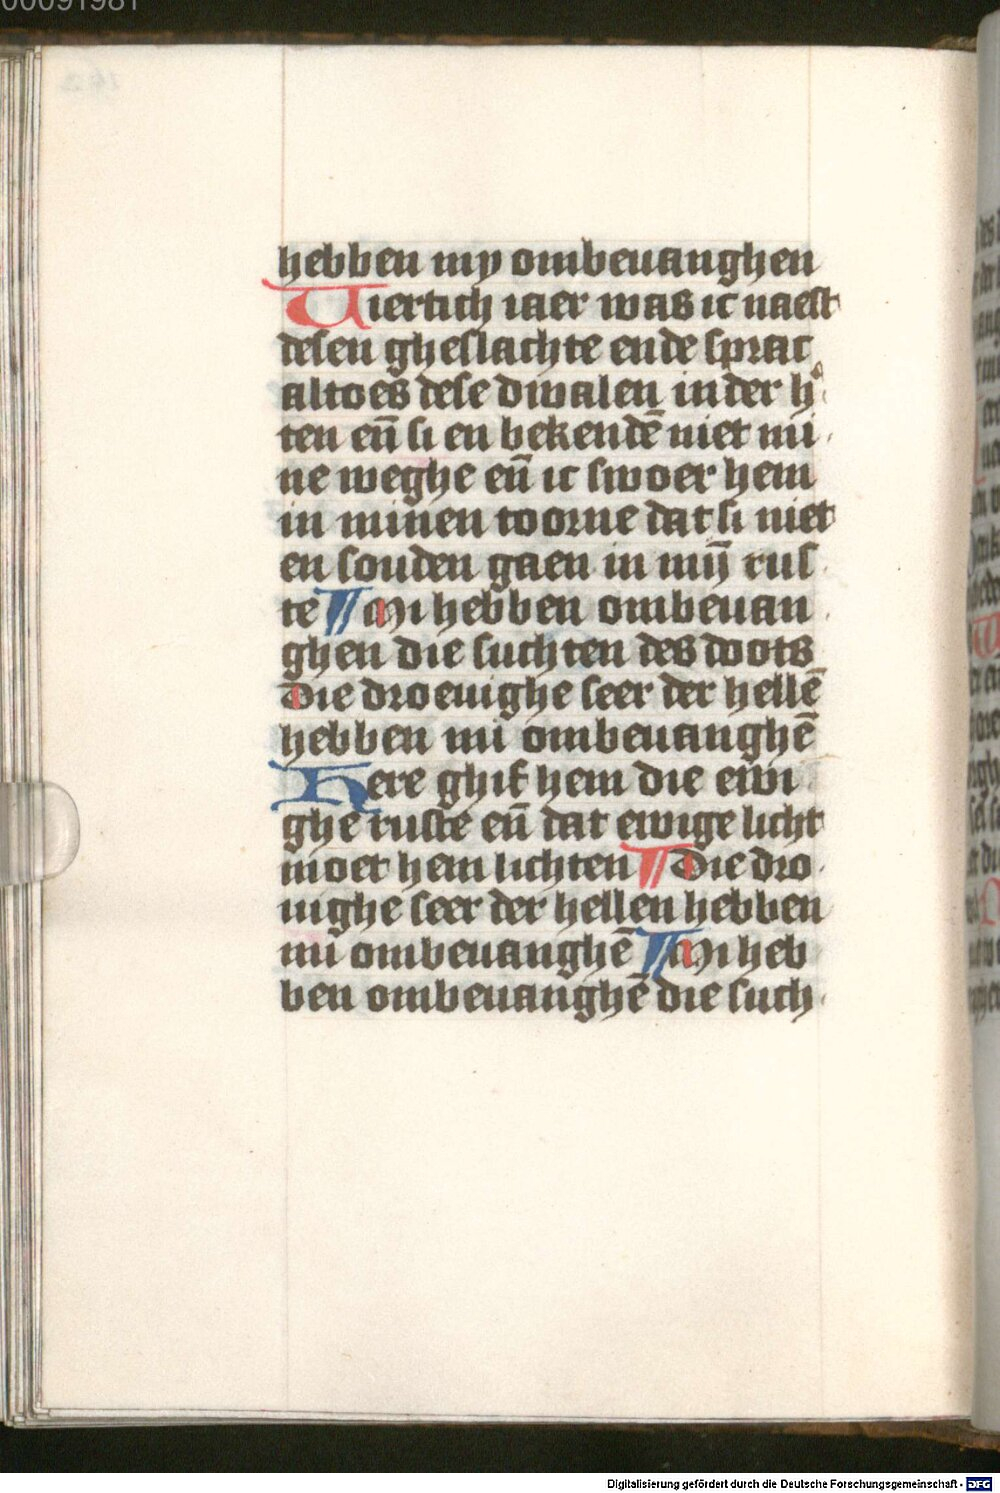 00091981
hebben my ombeuanghen
Uiertich iaer was ic naest
desen gheslachte ende sprac
altoes dese dwalen in der h'
ten eñ si en bekendē niet mi
ne weghe eñ ic swoer hem
in minen toorne dat si niet
en souden gaen in mij̄ rus
te ¶ Mi hebben ombeuan
ghen die suchten des doots
Die droeuighe seer der hellē
hebben mi ombeuanghē
Here ghif hem die ewi
ghe ruste eñ dat ewige licht
moet hem lichten ¶ Die dro
uighe seer der hellen hebben
mi ombeuanghē ¶ Mi heb
ben ombeuanghē die such
Digitalisierung gefördert durch die Deutsche Forschungsgemeinschaft - DFG